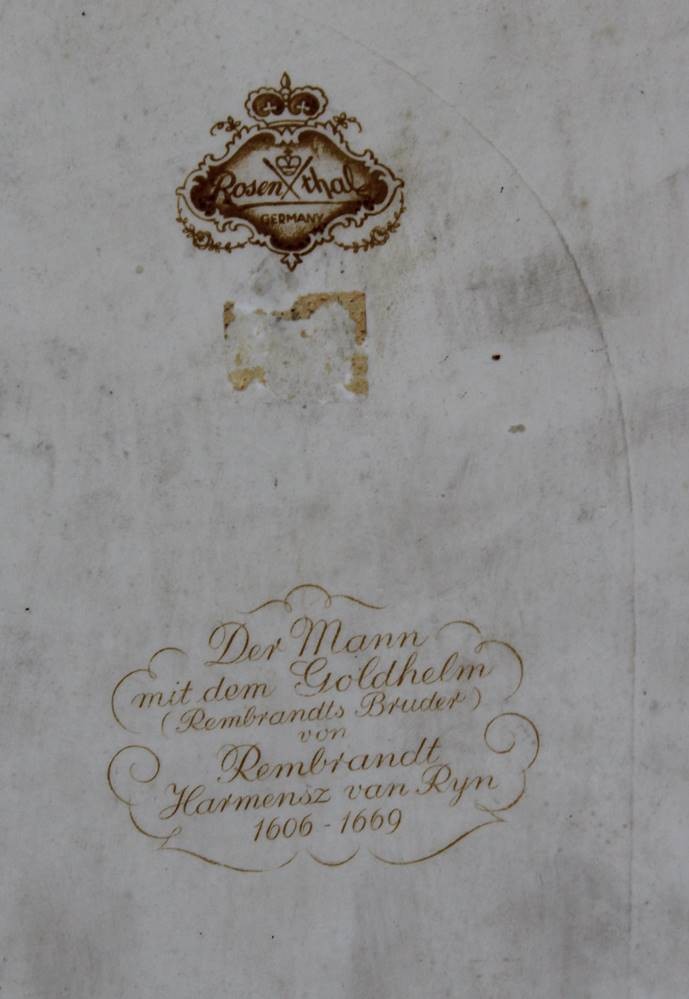 Rosenthal
GERMANY
Der Mann
mit dem Goldhelm
(Rembrandts Bruder)
von
Rembrandt
Harmensz van Ryn
1606 - 1669